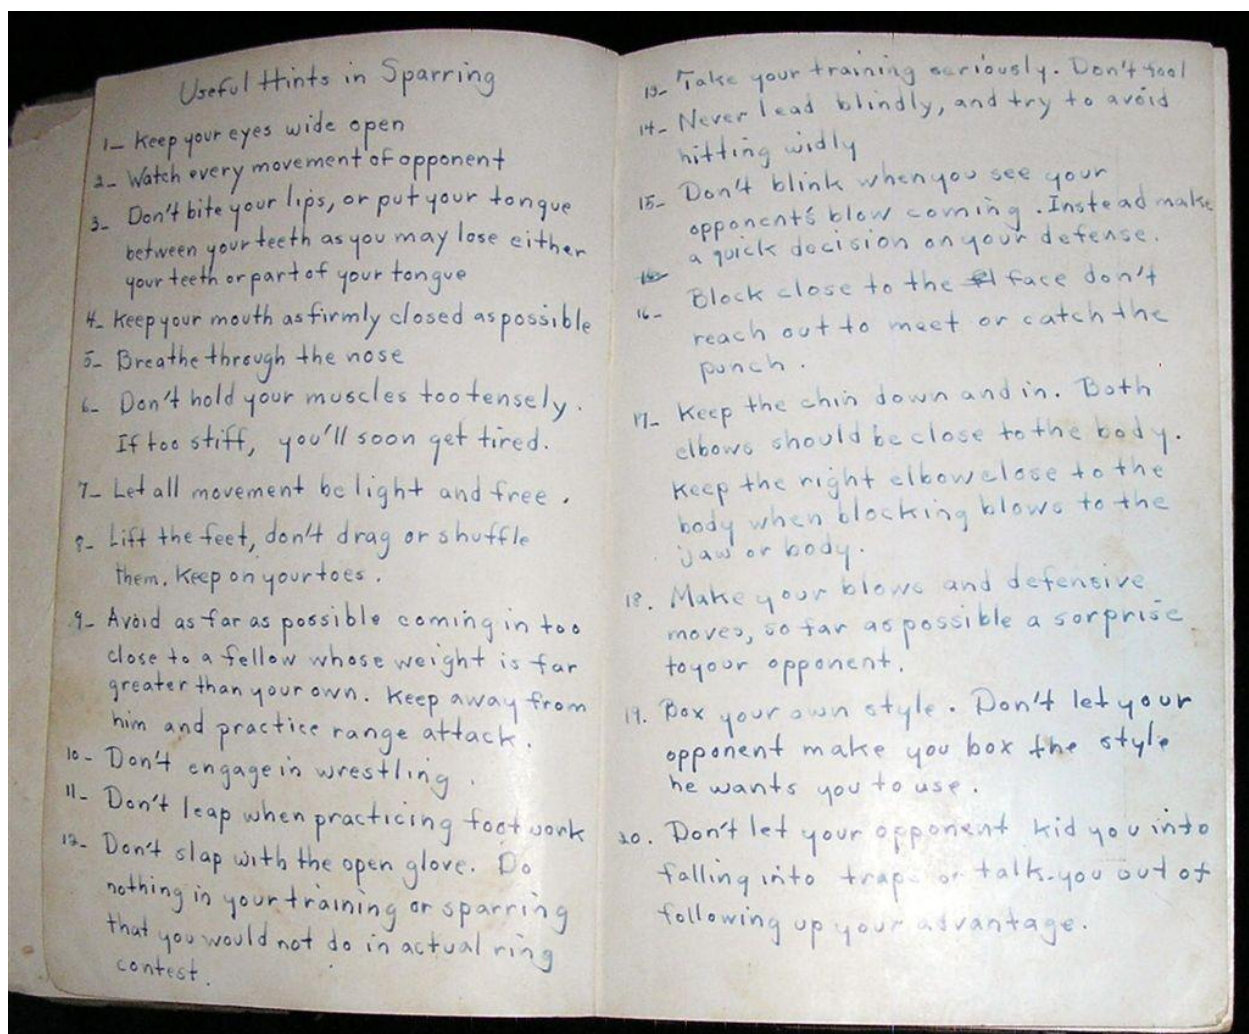 Useful Hints in Sparring
1- Keep your eyes wide open
2- Watch every movement of opponent
3- Don't bite your lips, or put your tongue
between your teeth as you may lose either
your teeth or part of your tongue
4- Keep your mouth as firmly closed as possible
5- Breathe through the nose
6- Don't hold your muscles too tensely.
If too stiff, you'll soon get tired.
7- Let all movement be light and free.
8- Lift the feet, don't drag or shuffle
them. Keep on your toes.
9- Avoid as far as possible coming in too
close to a fellow whose weight is far
greater than your own. Keep away from
him and practice range attack.
10- Don't engage in wrestling.
11- Don't leap when practicing foot work
12- Don't slap with the open glove. Do
nothing in your training or sparring
that you would not do in actual ring
contest.
13- Take your training seriously. Don't fool
14- Never lead blindly, and try to avoid
hitting widly
15- Don't blink when you see your
opponent's blow coming. Instead make
a quick decision on your defense.
16- Block close to the face don't
reach out to meet or catch the
punch.
17- Keep the chin down and in. Both
elbows should be close to the body.
Keep the right elbow close to the
body when blocking blows to the
jaw or body.
18. Make your blows and defensive
moves, so far as possible a sorprise
to your opponent.
19. Box your own style. Don't let your
opponent make you box the style
he wants you to use.
20. Don't let your opponent kid you into
falling into traps or talk-you out of
following up your advantage.